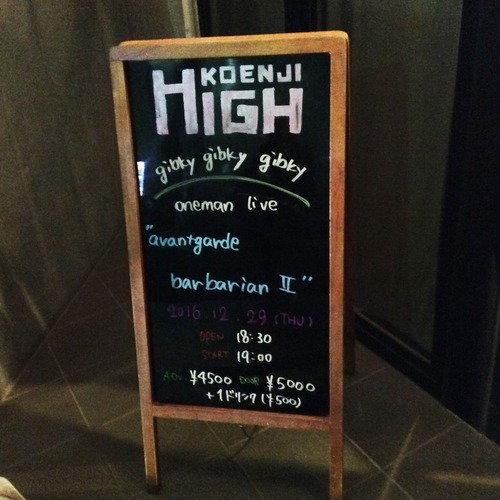 KOENJI
HIGH
gibky gibky gibky
oneman live
"avantgarde
barbarian II"
2016.12.29(THU)
OPEN 18:30
START 19:00
ADV. ¥4500 DOOR ¥5000
+1ドリンク(¥500)